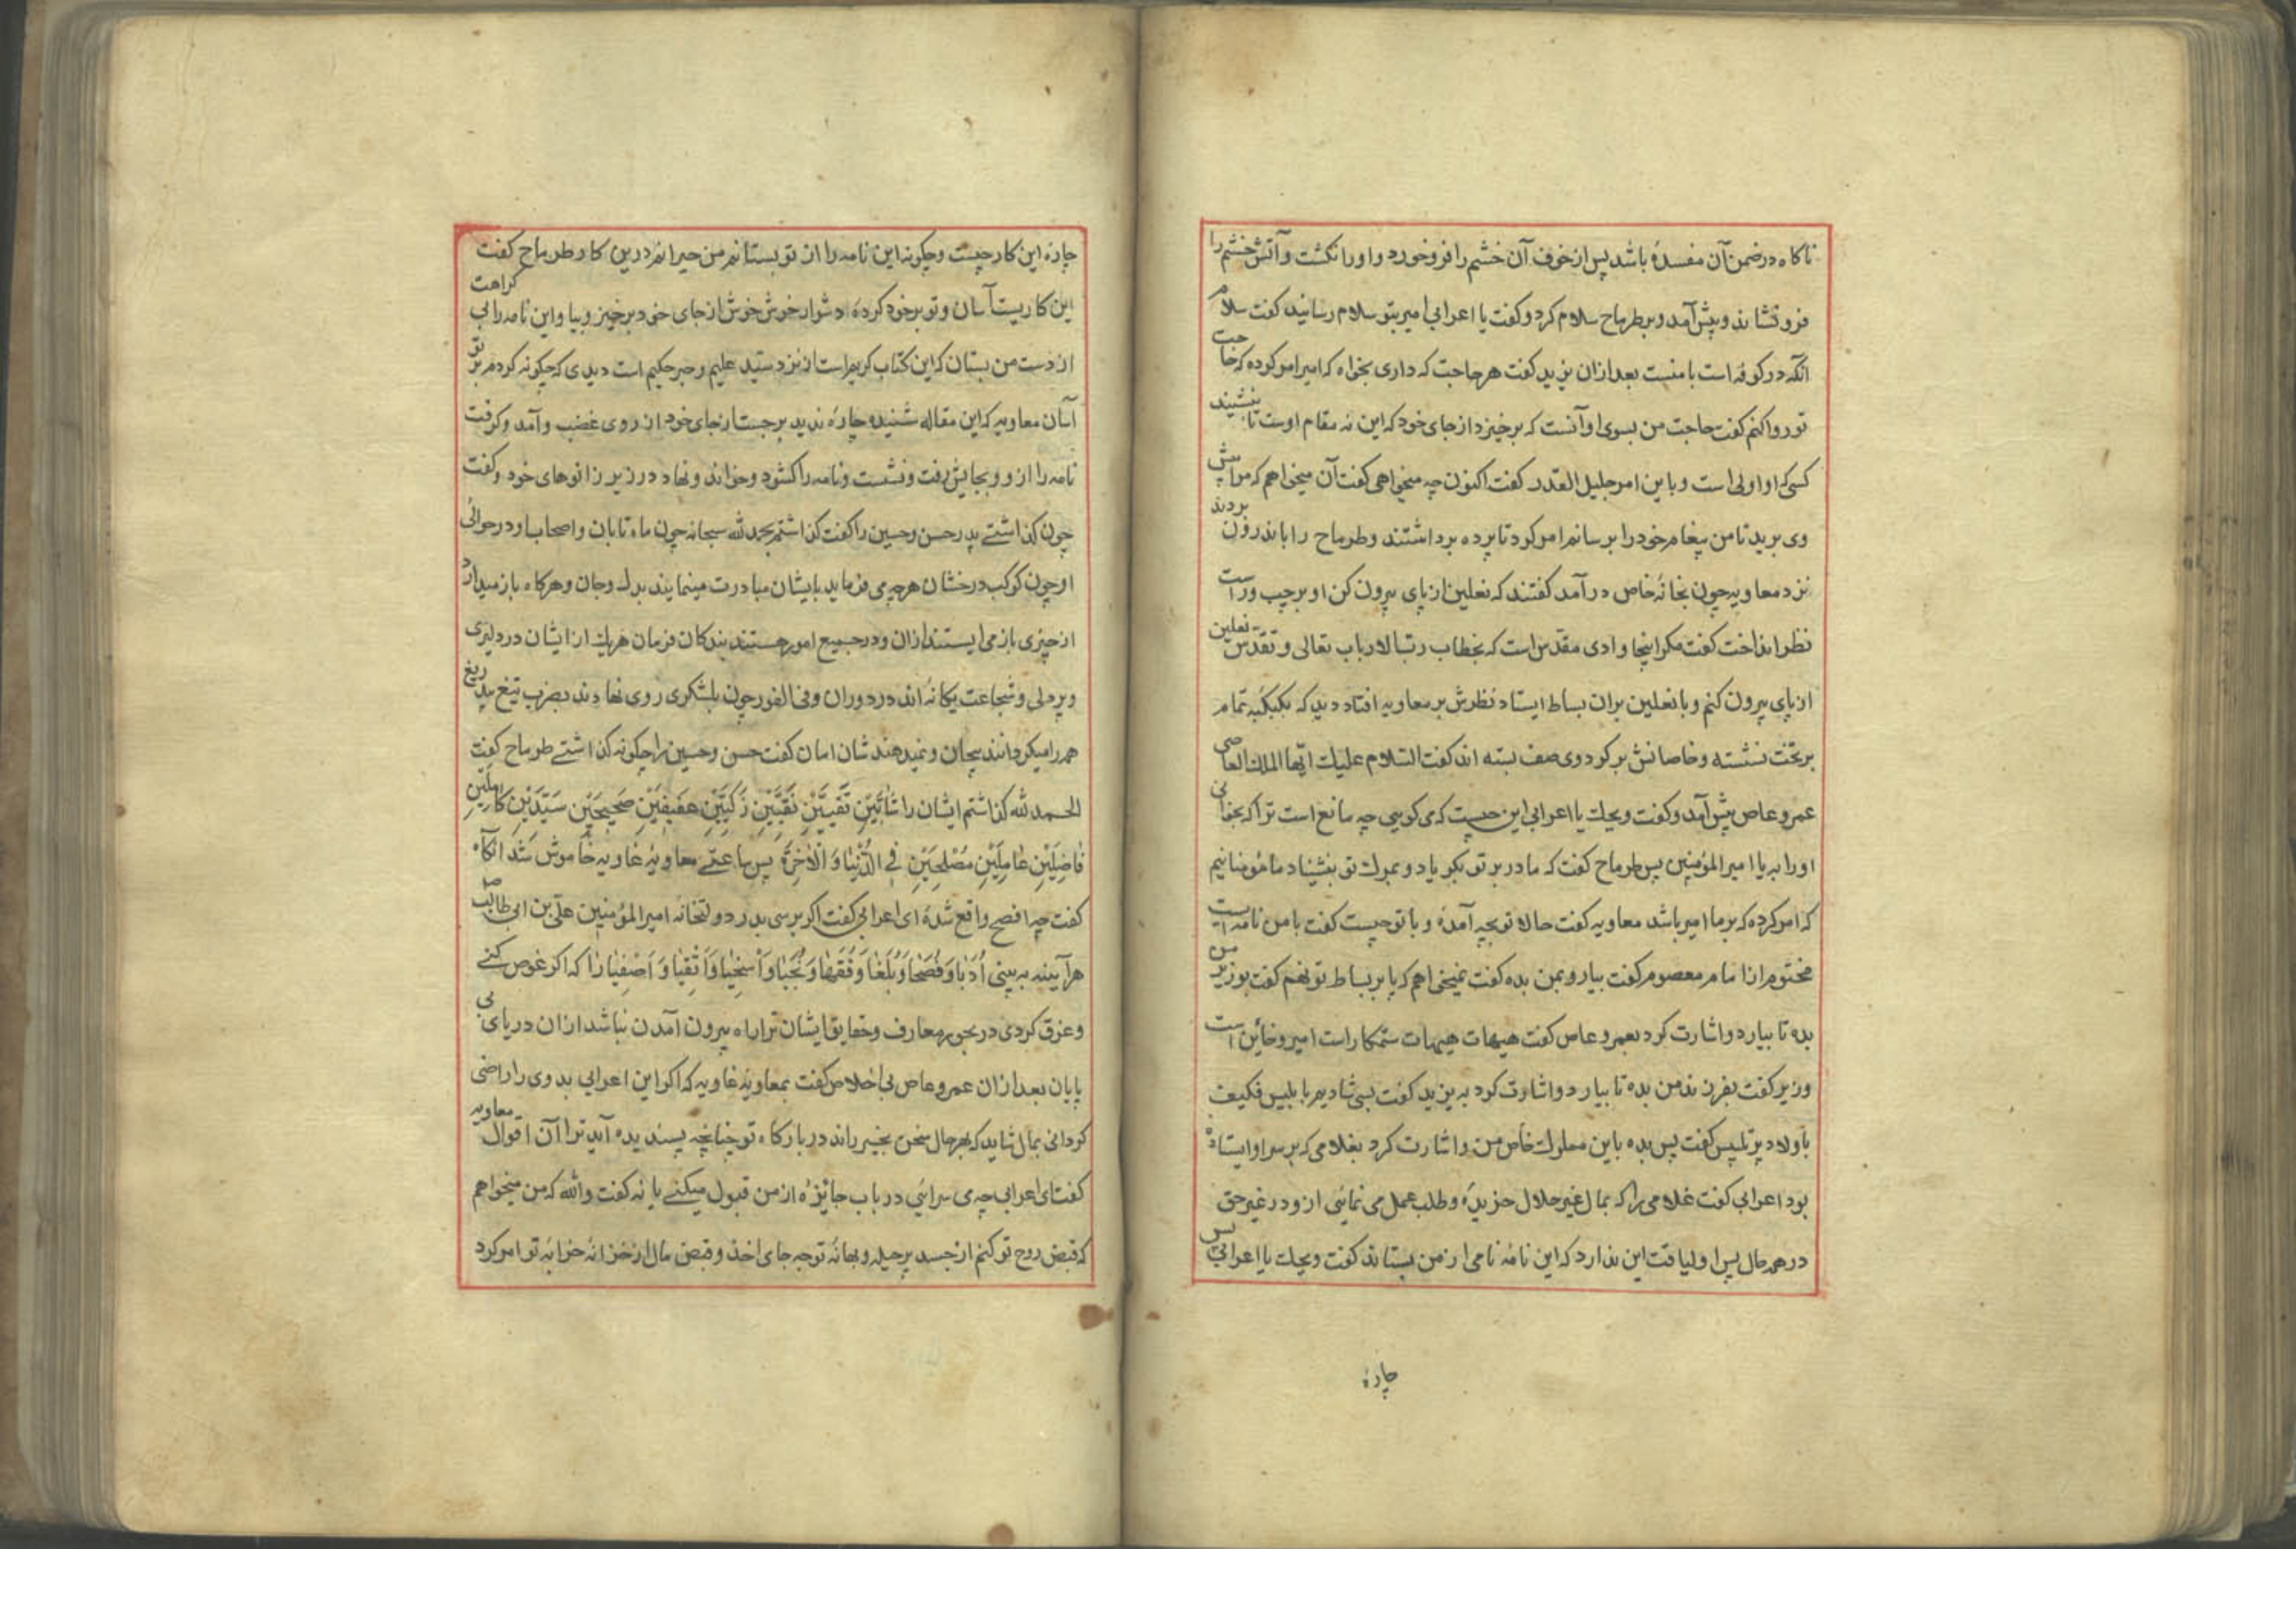 ناکاه درضمن آن مفسدهٔ باشد پس از خوف آن خشم را فرو خورد و او را نکشت و آتش خشم را
فرو نشاند و پیش آمد و بر طرماح سلام کرد و کفت یا اعرابی امیر بتو سلام رسانید کفت سلام
انکه در کوفه است با منست بعد ازان یزید کفت هر حاجت که داری بخواه که امیر امر کرده که حاجت
تو روا کنم کفت حاجت من بسوی او آنست که برخیزد از جای خود که این نه مقام اوست تا بنشیند
کسی که او اولی است و باین امر جلیل القدر کفت اکنون چه میخواهی کفت آن میخواهم که مرا پیش
وی برید تا من پیغام خود را برسانم امر کرد تا پرده برداشتند و طرماح را باندرون بردند
نزد معاویه چون بخانهٔ خاص درآمد کفتند که نعلین از پای بیرون کن او بر چپ و راست
نظر انداخت کفت مکر اینجا وادی مقدس است که بخطاب رب الارباب تعالی و تقدس نعلین
از پای بیرون کنم و با نعلین بران بساط ایستاد نظرش بر معاویه افتاد دید که بکبکبه تمام
بر تخت نشسته و خاصانش بر کرد وی صف بسته اند کفت السلام علیك ایها الملك العاصی
عمرو عاص پیش آمد و کفت ویحك یا اعرابی این چیست که می کویی چه مانع است ترا که بخوانی
او را به یا امیر المؤمنین پس طرماح کفت که مادر بر تو بکریاد و بمرك تو بنشیناد ما مؤمنانیم
که امر کرده که بر ما امیر باشد معاویه کفت حالا تو بچه آمدهٔ و با تو چیست کفت با من نامه ایست
مختوم از امام معصوم کفت بیار و بمن بده کفت نمیخواهم که پا بر بساط تو نهم کفت بوزیر من
بده تا بیارد و اشارت کرد بعمرو عاص کفت هیهات هیهات ستمکار است امیر و خائن است
وزیر کفت بفرزند من بده تا بیارد و اشارت کرد به یزید کفت بس شادیم با بلیس فکیف
باولاد پر تلبیس کفت پس بده باین مملوك خاص من و اشارت کرد بغلامی که بر سر او ایستاده
بود اعرابی کفت غلامی را که بمال غیر حلال خریدهٔ و طلب عمل می نمائی ازو در غیر حق
در همه حال پس او لیاقت این ندارد که این نامهٔ نامی از من بستاند کفت ویحك یا اعرابی پس
چارهٔ
چارهٔ این کار چیست و چکونه این نامه را از تو بستانم من حیرانم درین کار طرماح کفت
این کاریست آسان و تو بر خود کردهٔ دشوار خوش خوش از جای خود برخیز و بیا و این نامه را بی کراهت
از دست من بستان که این کتاب کریم است از نزد سید علیم و حبر حکیم است دیدی که چکونه کردم بر تو
آسان معاویه که این مقاله شنید چاره ندید برجست از جای خود از روی غضب و آمد و کرفت
نامه را ازو و بجایش رفت و نشست و نامه را کشود و خواند و نهاد در زیر زانوهای خود و کفت
چون کذاشتی پدر حسن و حسین را کفت کذاشتم بحمد لله سبحانه چون ماه تابان و اصحاب او در حوالی
او چون کوکب درخشان هرچه می فرماید بایشان مبادرت مینمایند بدل و جان و هرکاه باز میدارد
از چیزی باز می ایستند ازان و در جمیع امور هستند بندکان فرمان هریك از ایشان در دلیری
و پردلی و شجاعت یکانه اند در دوران و فی الفور چون بلشکری روی نهادند بضرب تیغ بیدریغ
همه را میکردانند بیجان و نمیدهند شان امان کفت حسن و حسین را چکونه کذاشتی طرماح کفت
الحمد لله کذاشتم ایشان را شَابَّیْنِ تَقِیَّیْنِ نَقِیَّیْنِ زَکِیَّیْنِ عَفِیفَیْنِ صَحِیحَیْنِ سَیِّدَیْنِ کَامِلَیْنِ
فَاضِلَیْنِ عَامِلَیْنِ مُصْلِحَیْنِ فِی الدُّنْیَا وَ الْاٰخِرَةِ پس ساعتی معاویهٔ غاویه خاموش شد آنکاه
کفت چه افصح واقع شدهٔ ای اعرابی کفت اکر برسی بدر دولتخانه امیر المؤمنین علی بن ابی طالب
هرآیینه به بینی اُدَبَا وَ فُصَحَا وَ بُلَغَا وَ فُقَهَا وَ نُجَبَا وَ اَسْخِیَا وَ اَتْقِیَا وَ اَصْفِیَا را که اکر غوص کنی
و غرق کردی در بحور معارف و حقایق ایشان ترا راه بیرون آمدن نباشد ازان دریای بی
پایان بعد ازان عمرو عاص بی اخلاص کفت بمعاویهٔ غاویه که اکر این اعرابی بدوی را راضی
کردانی بمال شاید که بهر حال سخن بخیر راند در بارکاه تو چنانچه پسندیده آید ترا آن اقوال معاویه
کفت ای اعرابی چه می سرائی در باب جائزه از من قبول میکنی یا نه کفت والله که من میخواهم
که قبض روح تو کنم از جسد پر حیله و بهانهٔ تو چه جای اخذ و قبض مال از خزانه خزانهٔ تو امر کرد